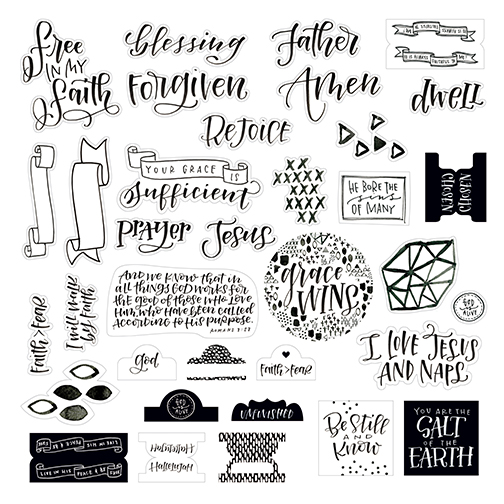 Free
IN MY
Faith
blessing
Forgiven
Father
Amen
dwell
REJOICE
YOUR GRACE IS
sufficient
HE BORE THE
sins
OF MANY
CHOSEN
CHOSEN
PRAYER
Jesus
FAITH>FEAR
I will walk
by FAITH
AND WE KNOW THAT IN
ALL THINGS GOD WORKS FOR
THE GOOD OF THOSE WHO LOVE
HIM, WHO HAVE BEEN CALLED
ACCORDING TO HIS PURPOSE.
ROMANS 8:28
grace
WINS
GOD
ALIVE
I LOVE JESUS
AND NAPS
God
FAITH>FEAR
GOD
ALIVE
UNFINISHED
BE STILL
AND
KNOW
YOU ARE THE
SALT
OF THE
EARTH
LIVE IN HIS PEACE &
Hallelujah
Hallelujah